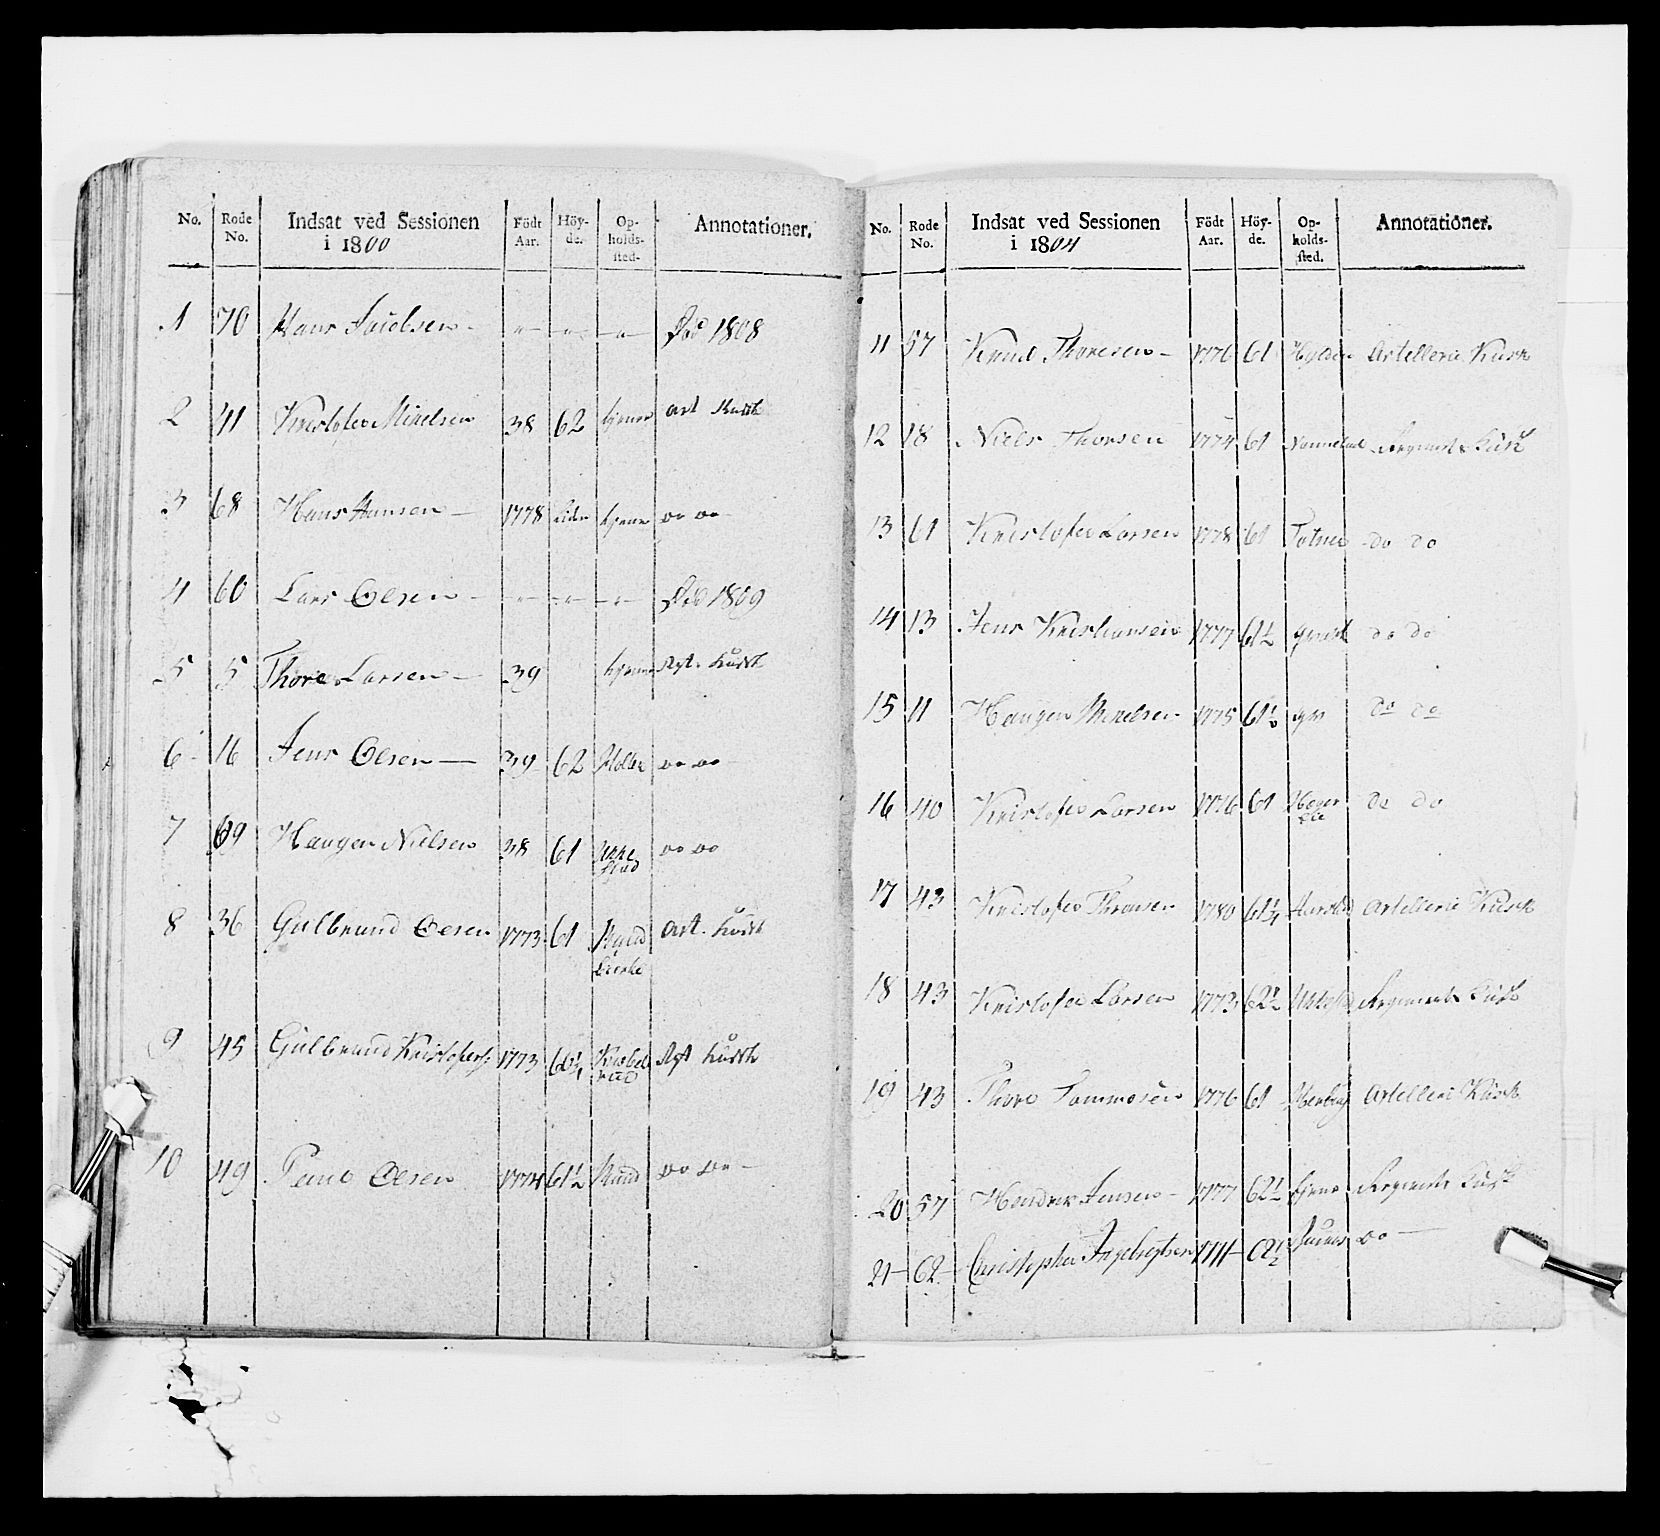 No. Rode No. Indsat ved Sessionen i 1800 Födt Aar. Höy-de. Op-holds-sted. Annotationer.
1 70 Hans Jacobsen - " - " - " - Död 1808
2 41 Kristofer Mikelsen 38 62 hjeme Art Kusk
3 68 Hans Hansen - 1778 hjeme do do
4 60 Lars Olsen - " - " - " - Död 1809
5 5 Thore Larsen - 39 hjeme Rgt. Kusk
6 16 Jens Olsen - 39 62 Holter do do -
7 69 Haagen Nielsen 38 61 do do
8 36 Gulbrand Olsen 1773 61 Art. Kusk
9 45 Gulbrand Kristofers: 1773 60¾ Rgt Kusk
10 49 Olsen 1774 61½ Ruud do do -
No. Rode No. Indsat ved Sessionen i 1804 Födt Aar. Höy-de. Op-holds-sted. Annotationer.
11 57 Knud Thoresen - 1776 61 Artellerie Kusk
12 18 Niels Thorsen 1774 61 Nannestad Regiments Kusk
13 61 Kristofer Larsen 1778 61 Totner do do
14 13 Jens Kristiansen 1777 61½ do do
15 11 Haagen Mikelsen 1775 61½ do do
16 40 Kristofer Larsen 1776 61 do do
17 43 Kristofer Thronsen 1780 61¼ Artellerie Kusk
18 43 Kristofer Larsen 1773 62½ Regiments Kusk
19 43 Thore Tommesen 1776 61 Artelleri Kusk
20 57 Hendrik Jensen - 1777 62½ hjeme Regiments Kusk
21 - 62 - Christopher Ingebrigtsen 62½ do -